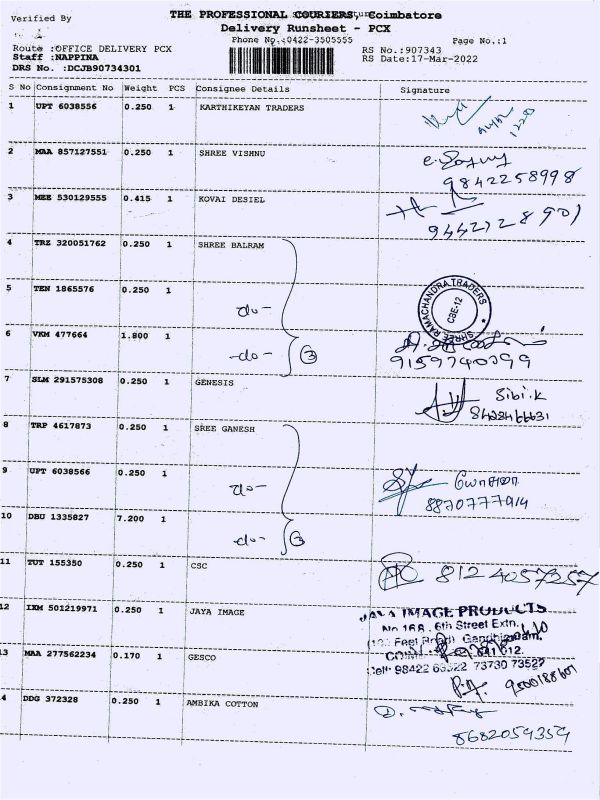 Verified By
THE PROFESSIONAL COURIERS, Coimbatore
Delivery Runsheet - PCX
Phone No.:0422-3505555
Page No.:1
Route :OFFICE DELIVERY PCX
Staff :NAPPINA
DRS No. :DCJB90734301
RS No.:907343
RS Date:17-Mar-2022
S No Consignment No Weight PCS Consignee Details Signature
1 UPT 6038556 0.250 1 KARTHIKEYAN TRADERS
2 MAA 857127551 0.250 1 SHREE VISHNU
9842258998
3 MEE 530129555 0.415 1 KOVAI DESIEL
4 TRZ 320051762 0.250 1 SHREE BALRAM
5 TEN 1865576 0.250 1 -do-
SHREE RAMACHANDRA TRADERS
CBE-12
6 VKM 477664 1.800 1 -do- 3
9159740399
7 SLM 291575308 0.250 1 GENESIS
Sibi.K
8 TRP 4617873 0.250 1 SREE GANESH
9 UPT 6038566 0.250 1 -do-
8870777914
10 DBU 1335827 7.200 1 -do- 3
11 TUT 155350 0.250 1 CSC
8124057257
12 IXM 501219971 0.250 1 JAYA IMAGE
JAYA IMAGE PRODUCTS
No 168, 6th Street Extn.
Feet Road) Gandhipuram,
13 MAA 277562234 0.170 1 GESCO
Cell: 98422 63322 73730 73527
4 DDG 372328 0.250 1 AMBIKA COTTON
8682059359